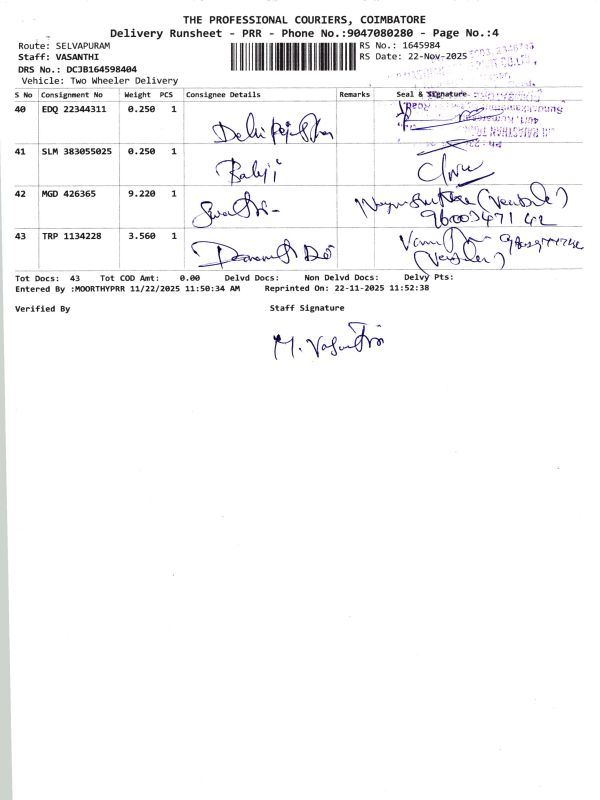 THE PROFESSIONAL COURIERS, COIMBATORE
Delivery Runsheet - PRR - Phone No.:9047080280 - Page No.:4
Route: SELVAPURAM
RS No.: 1645984
Staff: VASANTHI
RS Date: 22-Nov-2025
DRS No.: DCJB164598404
Vehicle: Two Wheeler Delivery
S No Consignment No Weight PCS Consignee Details Remarks Seal & Signature
40 EDQ 22344311 0.250 1
41 SLM 383055025 0.250 1 Balaji
42 MGD 426365 9.220 1
43 TRP 1134228 3.560 1
Tot Docs: 43 Tot COD Amt: 0.00 Delvd Docs: Non Delvd Docs: Delvy Pts:
Entered By :MOORTHYPRR 11/22/2025 11:50:34 AM Reprinted On: 22-11-2025 11:52:38
Verified By Staff Signature
M. Vasanthi